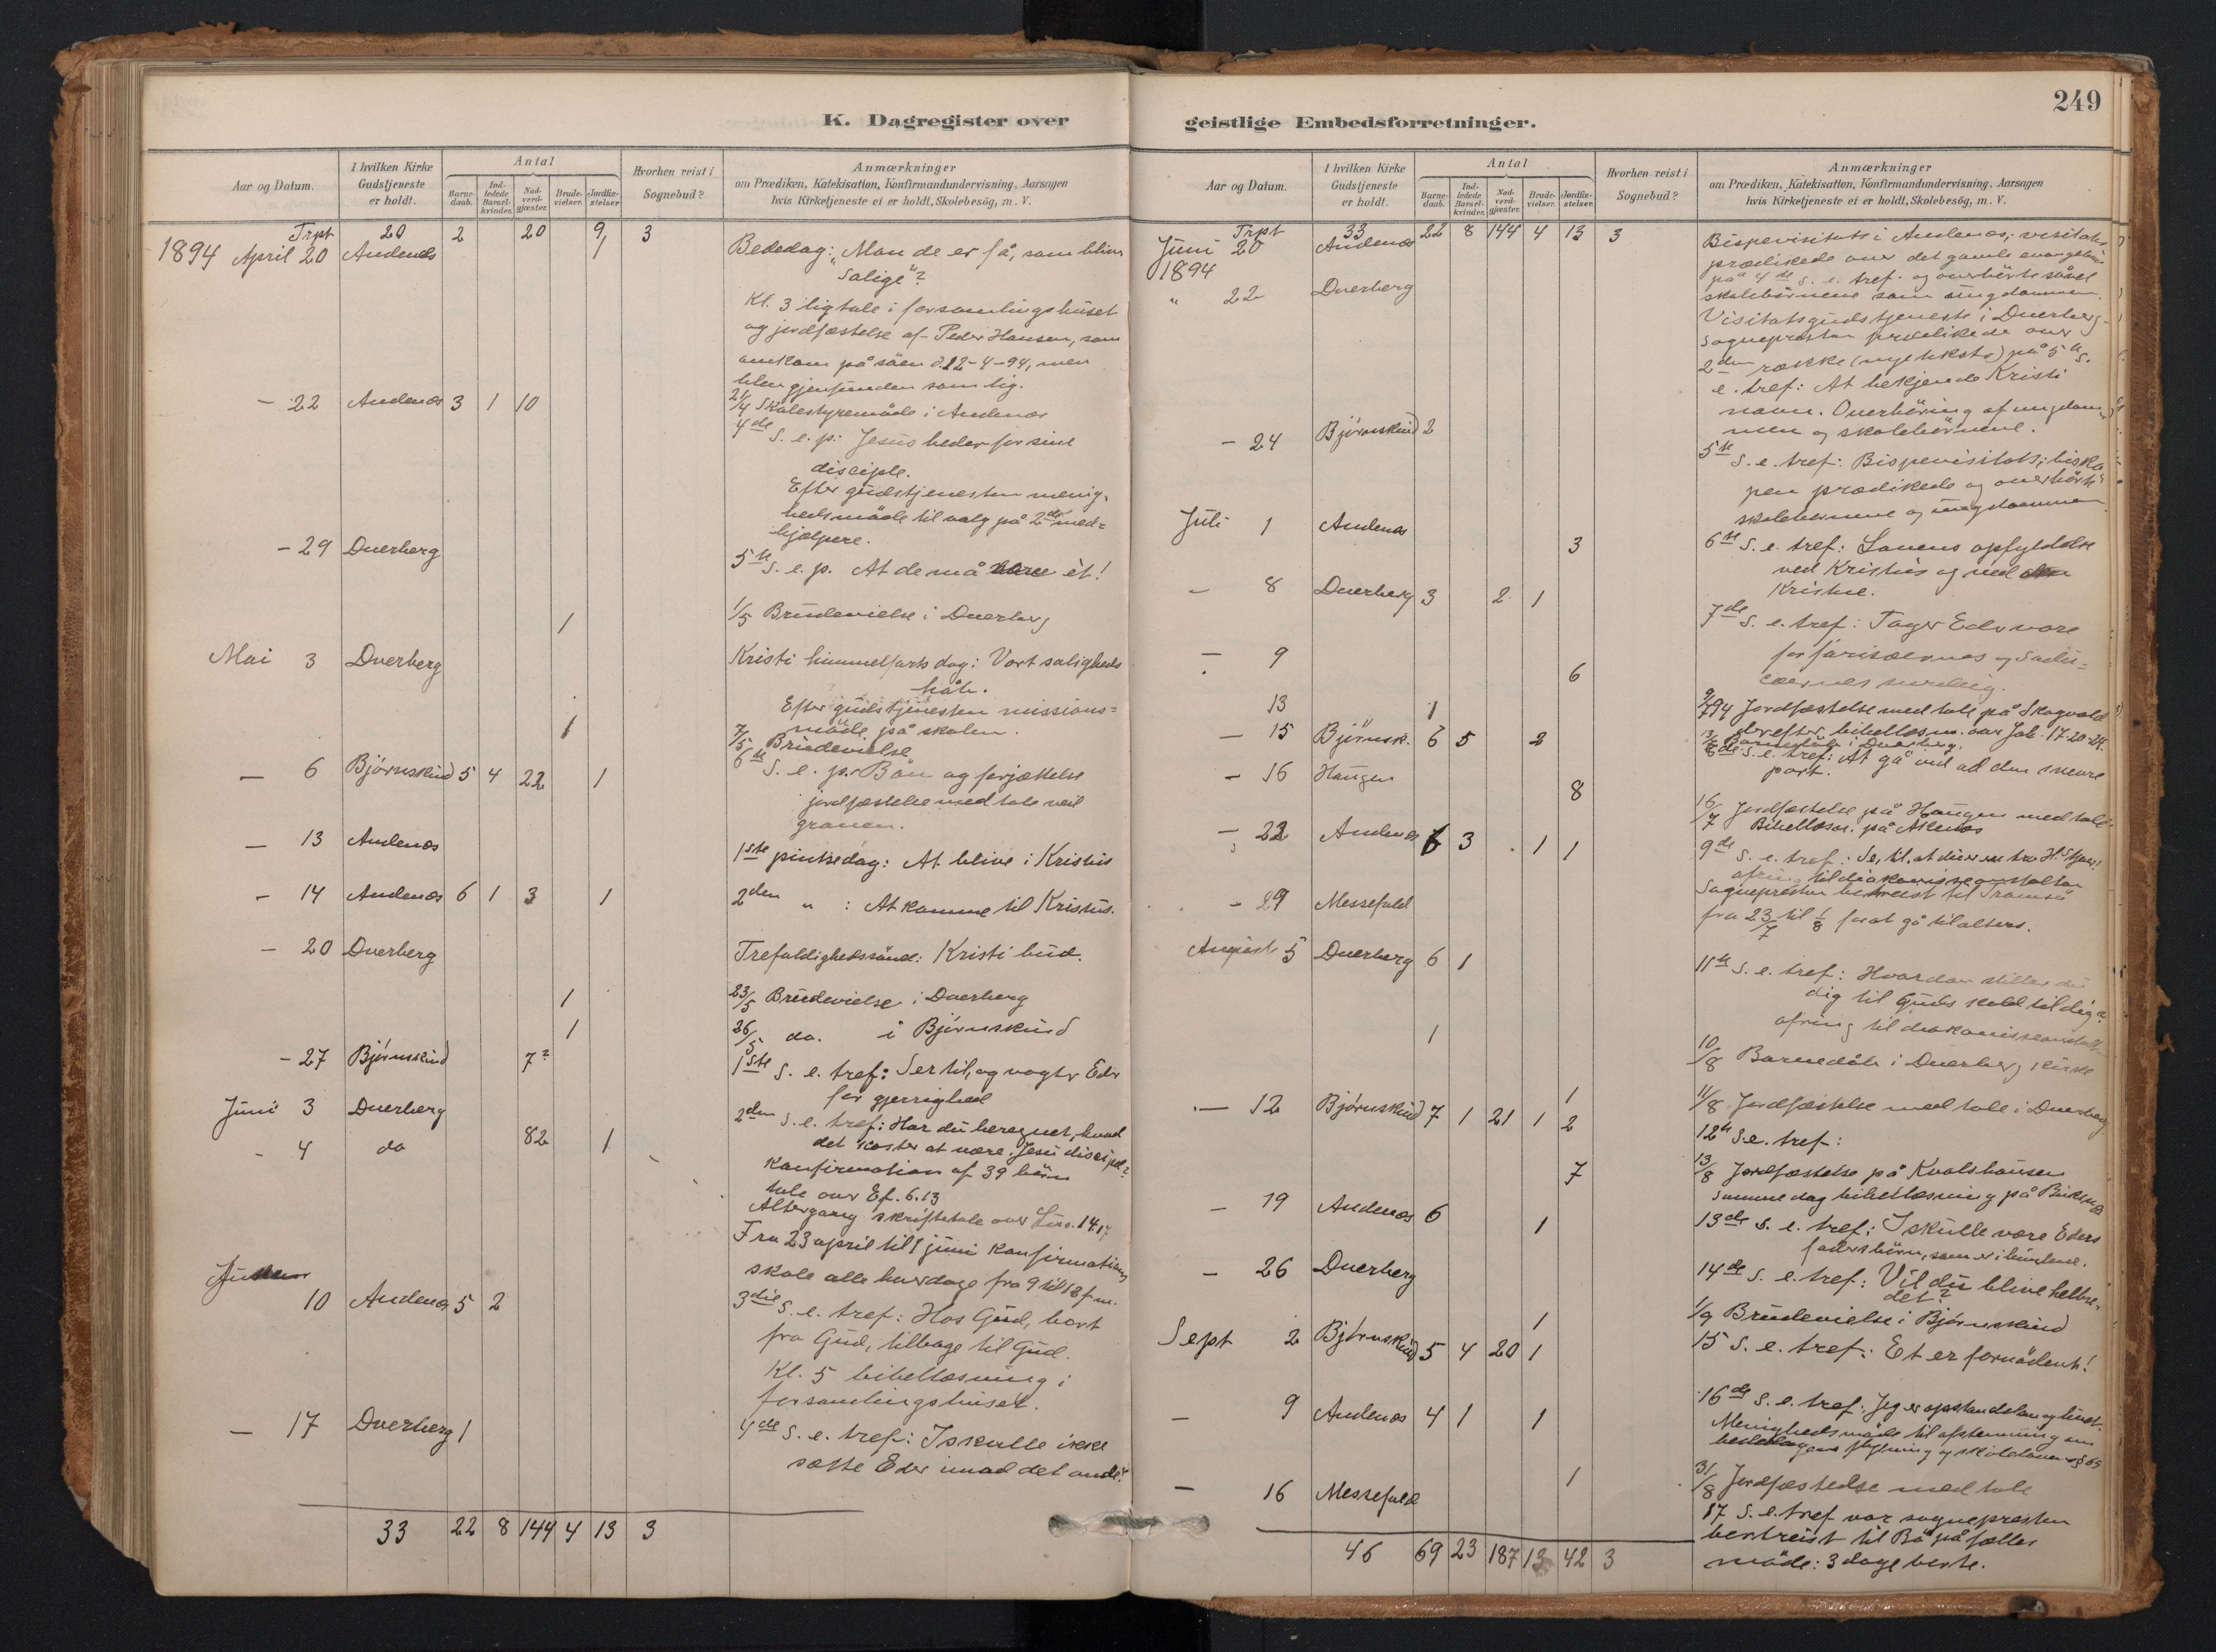 K. Dagregister over
Aar og Datum.
I hvilken Kirke Gudstjeneste er holdt.
Antal
Barne-daab.
Ind-ledede Barsel-kvinder.
Nad-verd-gjæster.
Brude-vielser.
Jordfæ-stelser.
Hvorhen reist i Sognebud?
Anmærkninger
om Prædiken, Katekisation, Konfirmandundervisning, Aarsagen
hvis Kirketjeneste ei er holdt, Skolebesög, m. V.
Trpt 20 2 20 9 3
1894 April 20 Andenes 1 Bededag: "Mon de er få, som blive
salige"?
Kl. 3 ligtale i forsamlingshuset
og jordfæstelse af Peder Hansen, som
omkom på söen d. 12-4-94, men
blev gjenfunden som lig.
21/4 Skolestyremöde i Andenæs
- 22 Andenæs 3 1 10 4de S. e. p.: Jesus beder for sine
disciple.
Efter gudstjenesten menig-
hedsmöde til valg på 2de med-
hjælpere.
- 29 Dverberg 5te S. e. p. At de må være ét!
1 1/5 Brudevielse i Dverberg
Mai 3 Dverberg Kristi himmelfarts dag: Vort saligheds
håb.
Efter gudstjenesten missions-
möde på skolen.
1 7/5 Brudevielse
- 6 Bjørnskind 5 4 22 1 6te S. e. p.: Bön og forjættelse
jordfæstelse med tale ved
graven.
- 13 Andenæs 1ste pintsedag: At blive i Kristus
- 14 Andenæs 6 1 3 1 2den " : At komme til Kristus.
- 20 Dverberg Trefoldighedssönd: Kristi bud.
1 23/5 Brudevielse i Dverberg
1 26/5 do. i Bjørnskind
- 27 Bjørnskind 7? 1ste S. e. tref: Ser til, og vogter Eder
for gjerrighed
Juni 3 Dverberg 2den S. e. tref: Har du beregnet, hvad
det koster at være Jesu discipel?
- 4 do 82 1 Konfirmation af 39 börn
tale over Ef. 6.13
Altergang skriftetale over Luc. 14.17
Fra 23 april til 1 juni konfirmations
skole alle hverdage fra 9 til 12 f.m.
10 Andenæs 5 2 3die S. e. tref: Hos Gud, bort
fra Gud, tilbage til Gud.
Kl. 5 bibellæsning i
forsamlingshuset.
- 17 Dverberg 1 4de S. e. tref: I skulle ikke
sætte Eder imod det onde.
33 22 8 144 4 13 3
geistlige Embedsforretninger.
249
Aar og Datum.
I hvilken Kirke Gudstjeneste er holdt.
Antal
Barne-daab.
Ind-ledede Barsel-kvinder.
Nad-verd-gjæster.
Brude-vielser.
Jordfæ-stelser.
Hvorhen reist i Sognebud?
Anmærkninger
om Prædiken, Katekisation, Konfirmandundervisning, Aarsagen
hvis Kirketjeneste ei er holdt, Skolebesög, m. V.
Trpt 33 22 8 144 4 13 3
Juni 20 Andenæs Bispevisitats i Andenæs; visitator
1894 prædikede over det gamle evangelium
på 4de S. e. tref. og overhörte såvel
skolebörnene som ungdommen.
" 22 Dverberg Visitatsgudstjeneste i Dverberg
sognepresten prædikede over
2den række (nye tekster) på 5te S.
e. tref: At bekjende Kristi
navn. Overhöring af ungdom-
men og skolebörnene.
- 24 Bjørnskind 2 5te S. e. tref: Bispevisitats; bisko
pen prædikede og overhörte
skolebörnene og ungdommen
Juli 1 Andenæs 3 6te S. e. tref: Lovens opfyldelse
ved Kristus og ved
Kristne.
- 8 Dverberg 3 2 1 7de S. e. tref: Tager Eder vare
for farisæernes og sadu-
cæernes surdeig.
- 9 6 9/7 94 Jordfæstelse med tale på Skogvold
derefter bibellæsn. over Joh. 17.20-24.
13 1 13/7 Barnedåb i Dverberg.
- 15 Bjørnsk. 6 5 2 8de S. e. tref: At gå ind ad den snevre
port.
- 16 Haugen 8 16/7 Jordfæstelse på Haugen med tale
Bibellæsn. på Åknæs
- 22 Andenæs 6 3 1 1 9de S. e. tref: Se, til, at du er en tro H. S tjener!
ofring til diakonisseanstalten
- 29 Messefald Sognepresten bortreist til Tromsö
fra 23/7 til 1/8 for at gå til alters.
August 5 Dverberg 6 1 11te S. e. tref: Hvordan stiller du
dig til Guds kald til dig?
ofring til diakonisseanstalten
1 10/8 Barnedåb i Dverberg kirke
1 11/8 Jordfæstelse med tale i Dverberg
- 12 Bjørnskind 7 1 21 1 2 12te S. e. tref:
7 13/8 Jordfæstelse på Kvalshausen
samme dag bibellæsning på
- 19 Andenæs 6 1 13de S. e. tref: I skulle være Eders
faders börn, som er i himlene.
- 26 Dverberg 14de S. e. tref: Vil du blive helbre-
det?
1 1/9 Brudevielse i Bjørnskind
Sept 2 Bjørnskind 5 4 20 1 15 S. e. tref: Et er fornödent!
- 9 Andenæs 4 1 1 16de S. e. tref: Jeg er opstandelsen og livet.
Menighedsmöde til afstemning om
bededagens flytning og skoleloven § 65
1 31/8 Jordfæstelse med tale
- 16 Messefald 17 S. e. tref var sognepresten
bortreist til Bö på fælles
möde: 3 dage borte.
46 69 23 187 13 42 3